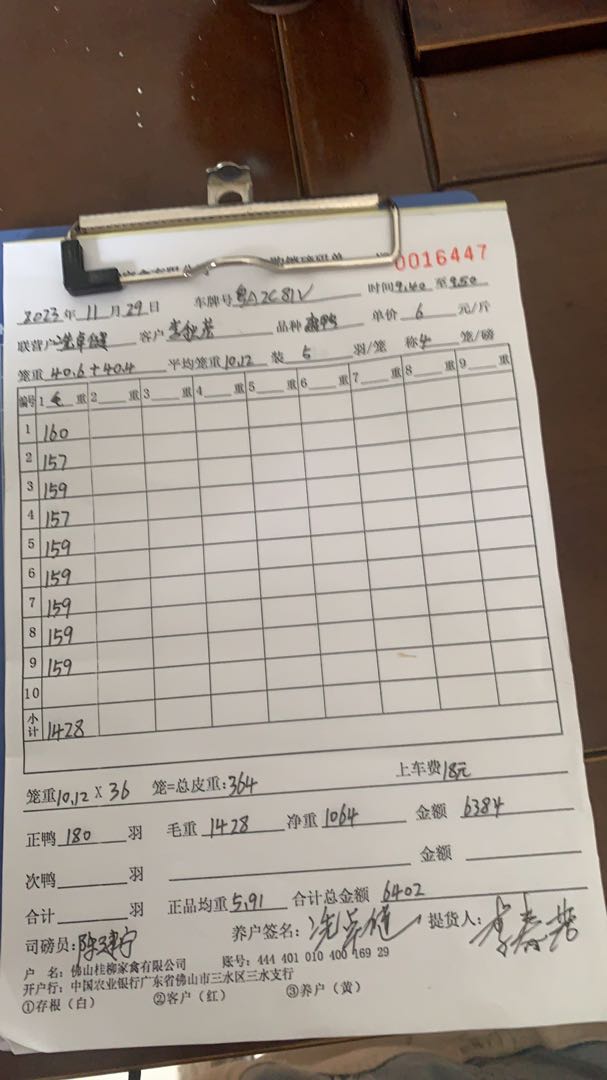 0016447
2023年11月29日 车牌号粤A2C81V 时间9.40至9.50
联营户冼卓健 客户 品种麻鸭 单价6元/斤
笼重40.6+40.4 平均笼重10.12 装5羽/笼 称4笼/磅
编号 1 重 2 重 3 重 4 重 5 重 6 重 7 重 8 重 9 重
1 160
2 157
3 159
4 157
5 159
6 159
7 159
8 159
9 159
10
小计 1428
笼重10.12×36 笼=总皮重:364 上车费18元
正鸭180羽 毛重1428 净重1064 金额6384
次鸭 羽 金额
合计 羽 正品均重5.91 合计总金额6402
司磅员: 养户签名:冼卓健 提货人:
户 名:佛山桂柳家禽有限公司 账号:444 401 010 400 169 29
开户行:中国农业银行广东省佛山市三水区三水支行
①存根(白) ②客户(红) ③养户(黄)